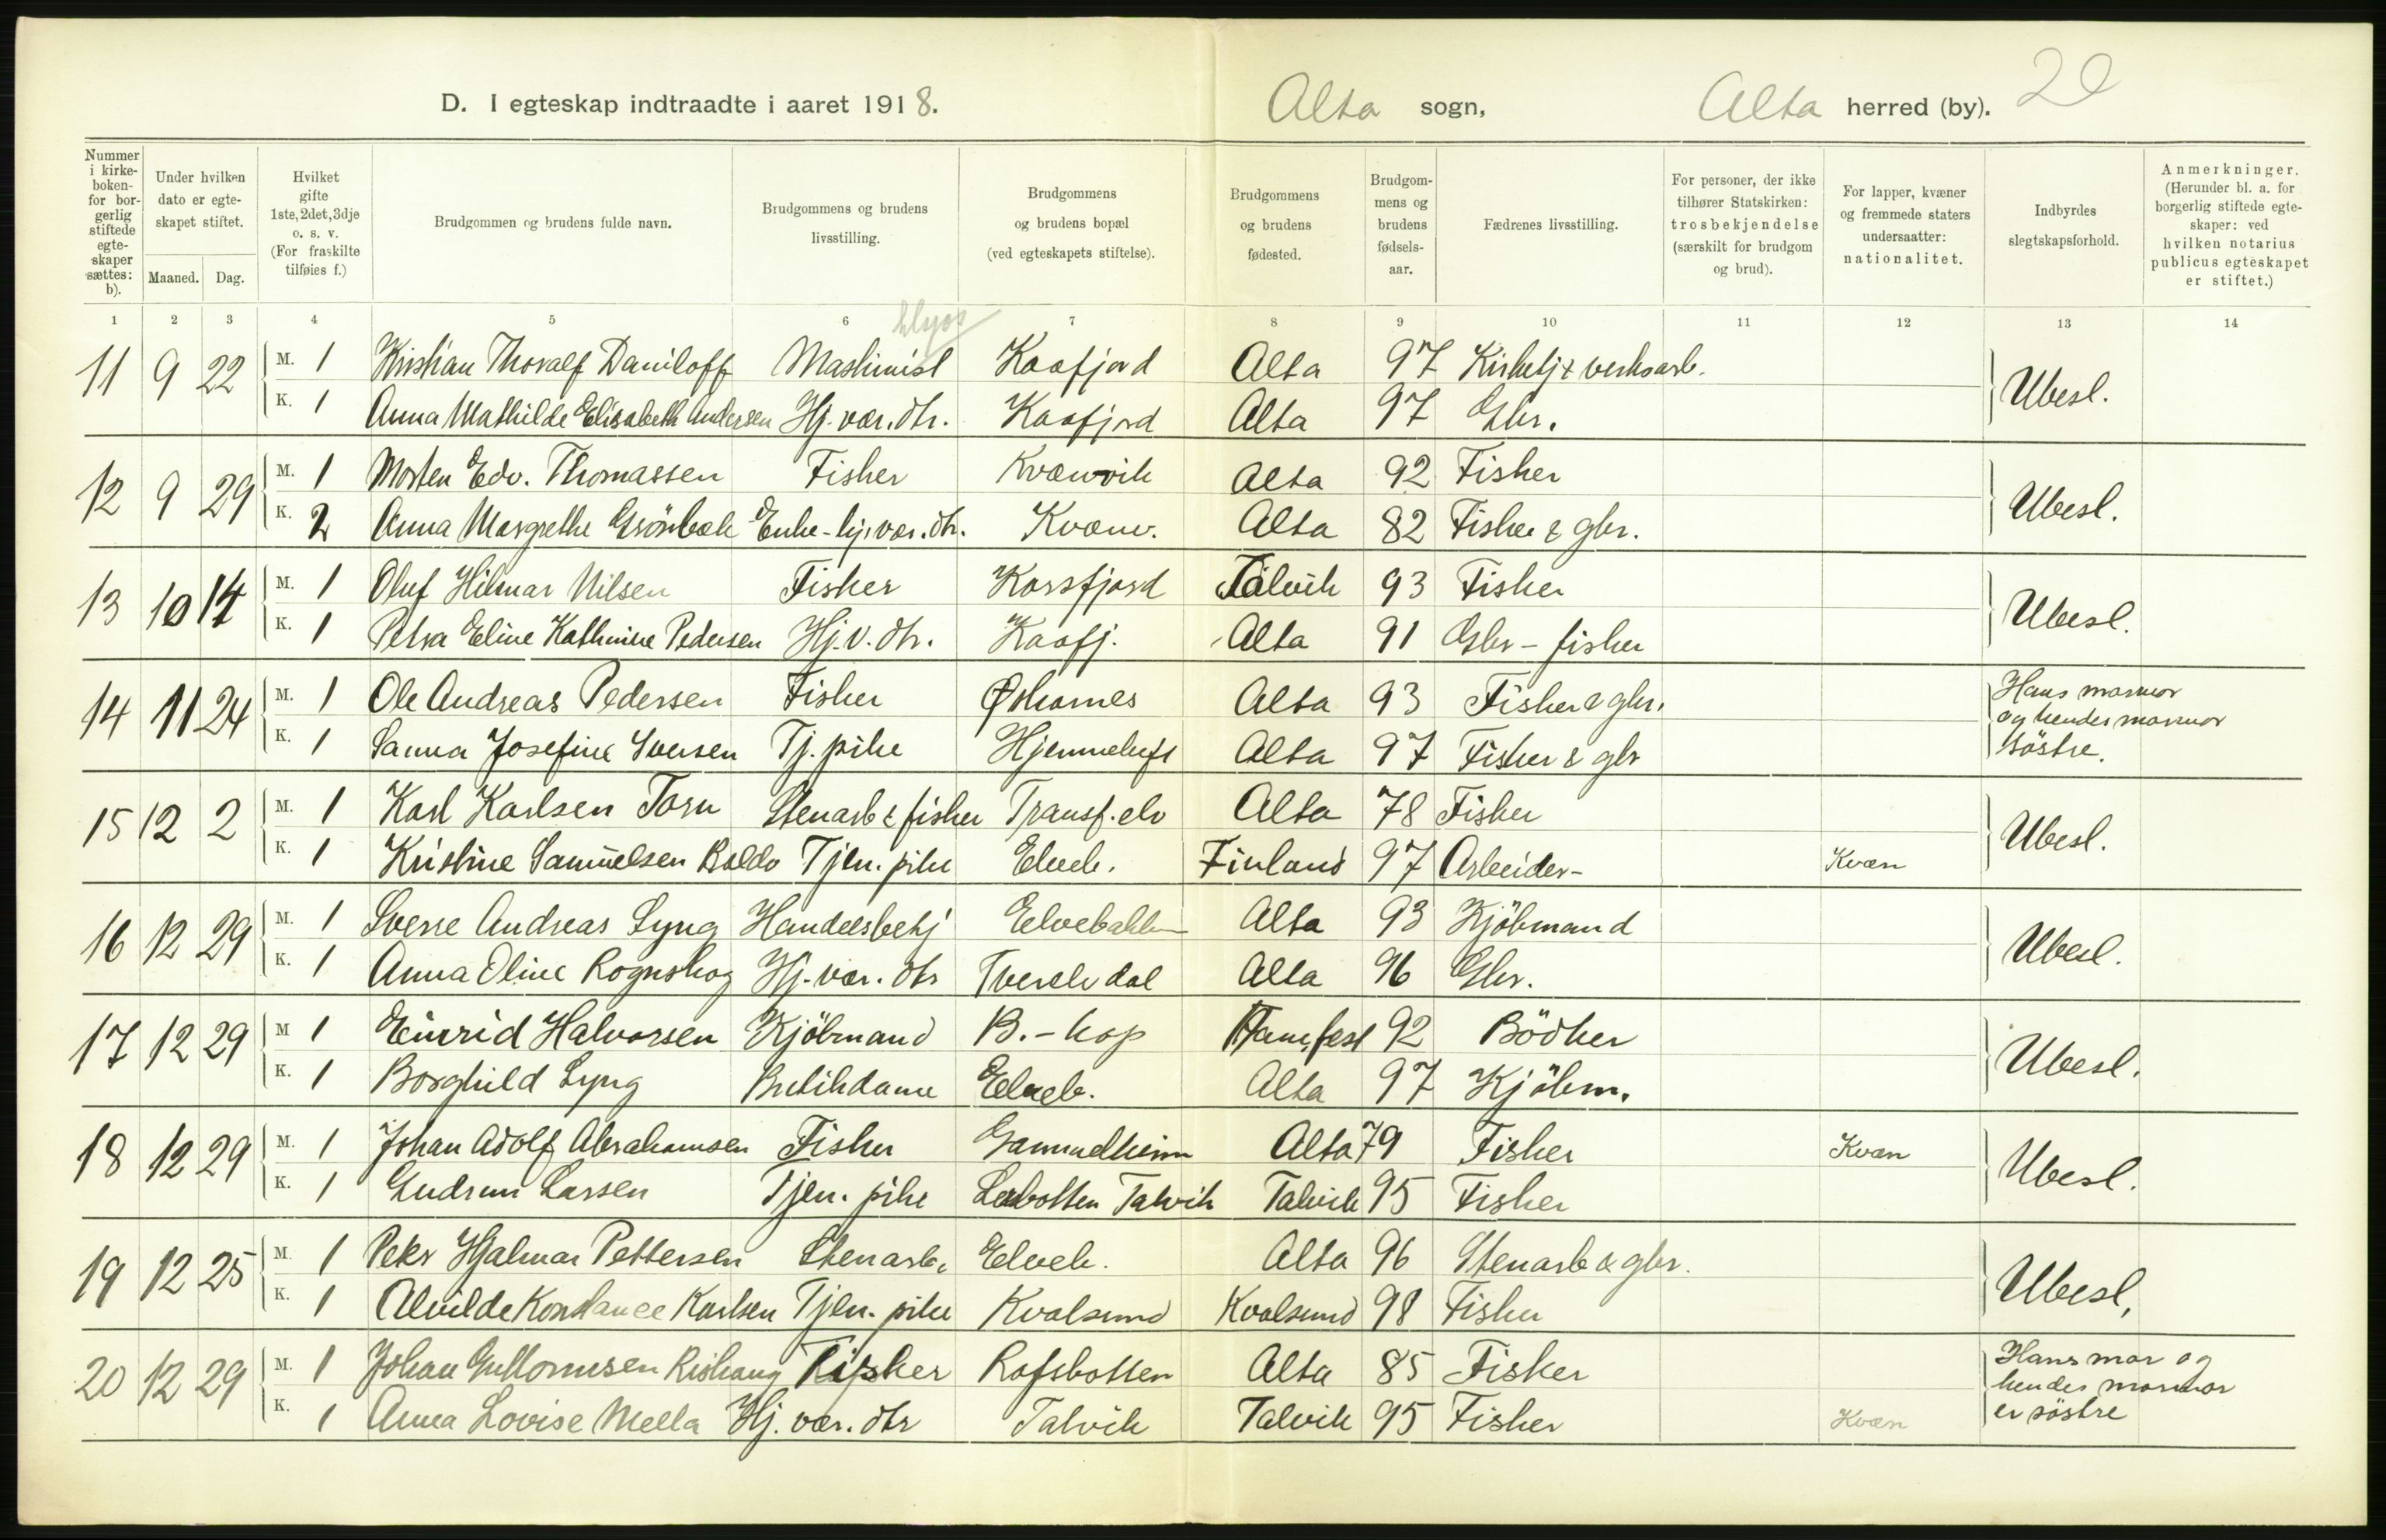 D. I egteskap indtraadte i aaret 1918. Alta sogn, Alta herred (by). 20
Nummer i kirkeboken for borgerlig stiftede egteskaper sættes: b).
Under hvilken dato er egteskapet stiftet.
Maaned. Dag.
Hvilket gifte 1ste, 2det, 3dje o. s. v. (For fraskilte tilføies f.)
Brudgommen og brudens fulde navn.
Brudgommens og brudens livsstilling.
Brudgommens og brudens bopæl (ved egteskapets stiftelse).
Brudgommens og brudens fødested.
Brudgommens og brudens fødselsaar.
Fædrenes livsstilling.
For personer, der ikke tilhører Statskirken: trosbekjendelse (særskilt for brudgom og brud).
For lapper, kvæner og fremmede staters undersaatter: nationalitet.
Indbyrdes slegtskapsforhold.
Anmerkninger. (Herunder bl. a. for borgerlig stiftede egteskaper: ved hvilken notarius publicus egteskapet er stiftet.)
1 2 3 4 5 6 7 8 9 10 11 12 13 14
11 9 22 M. 1 Kristian Thoralf Daniloff Maskinist Kaafjord Alta 97 Kirketj & verksarb. Ubesl.
K. 1 Anna Mathilde Elisabeth Andersen Hj. vær. dtr. Kaafjord Alta 97 Gbr.
12 9 29 M. 1 Morten Edv. Thomassen Fisker Kvænvik Alta 92 Fisker Ubesl.
K. 2 Anna Margrethe Grönbæk Enke-hj. vær. dtr. Kvænv. Alta 82 Fisker & gbr.
13 10 14 M. 1 Oluf Hilmar Nilsen Fisker Korsfjord Talvik 93 Fisker Ubesl.
K. 1 Petra Eline Kathrine Pedersen Hj. v. dtr. Kaafj. Alta 91 Gbr - fisker
14 11 24 M. 1 Ole Andreas Pedersen Fisker Øskarnes Alta 93 Fisker & gbr. Hans mormor
og hendes mormor
K. 1 Sanna Josefine Iversen Tj. pike Hjemmeluft Alta 97 Fisker & gbr söstre.
15 12 2 M. 1 Karl Karlsen Torn Stenarb & fisker Transf. elv Alta 78 Fisker Ubesl.
K. 1 Kristine Samuelsen Baldo Tjen. pike Elveb. Finland 97 Arbeider- Kvæn
16 12 29 M. 1 Sverre Andreas Lyng Handelsbetj Elvebakken Alta 93 Kjöbmand Ubesl.
K. 1 Anna Oline Rognskog Hj. vær. dtr Tverelvdal Alta 96 Gbr.
17 12 29 M 1 Einrid Halvorsen Kjöbmand B.-hop Hamfest 92 Bödker Ubesl.
K. 1 Borghild Lyng Butikdame Elveb. Alta 97 Kjöbm.
18 12 29 M. 1 Johan Adolf Abrahamsen Fisker Gammelheim Alta 79 Fisker Kvæn Ubesl.
K. 1 Gudrun Larsen Tjen. pike Lerbotten Talvik Talvik 95 Fisker
19 12 25 M. 1 Peter Hjalmar Pettersen Stenarb. Elveb. Alta 96 Stenarb & gbr. Ubesl,
K. 1 Alvilde Konstance Karlsen Tjen. pike Kvalsund Kvalsund 98 Fisker
20 12 29 M. 1 Johan Guttormsen Rishaug Fisker Rafsbotten Alta 85 Fisker Hans mor og
hendes mormor
K. 1 Anna Lovise Mella Hj. vær. dtr Talvik Talvik 95 Fisker Kvæn er söstre